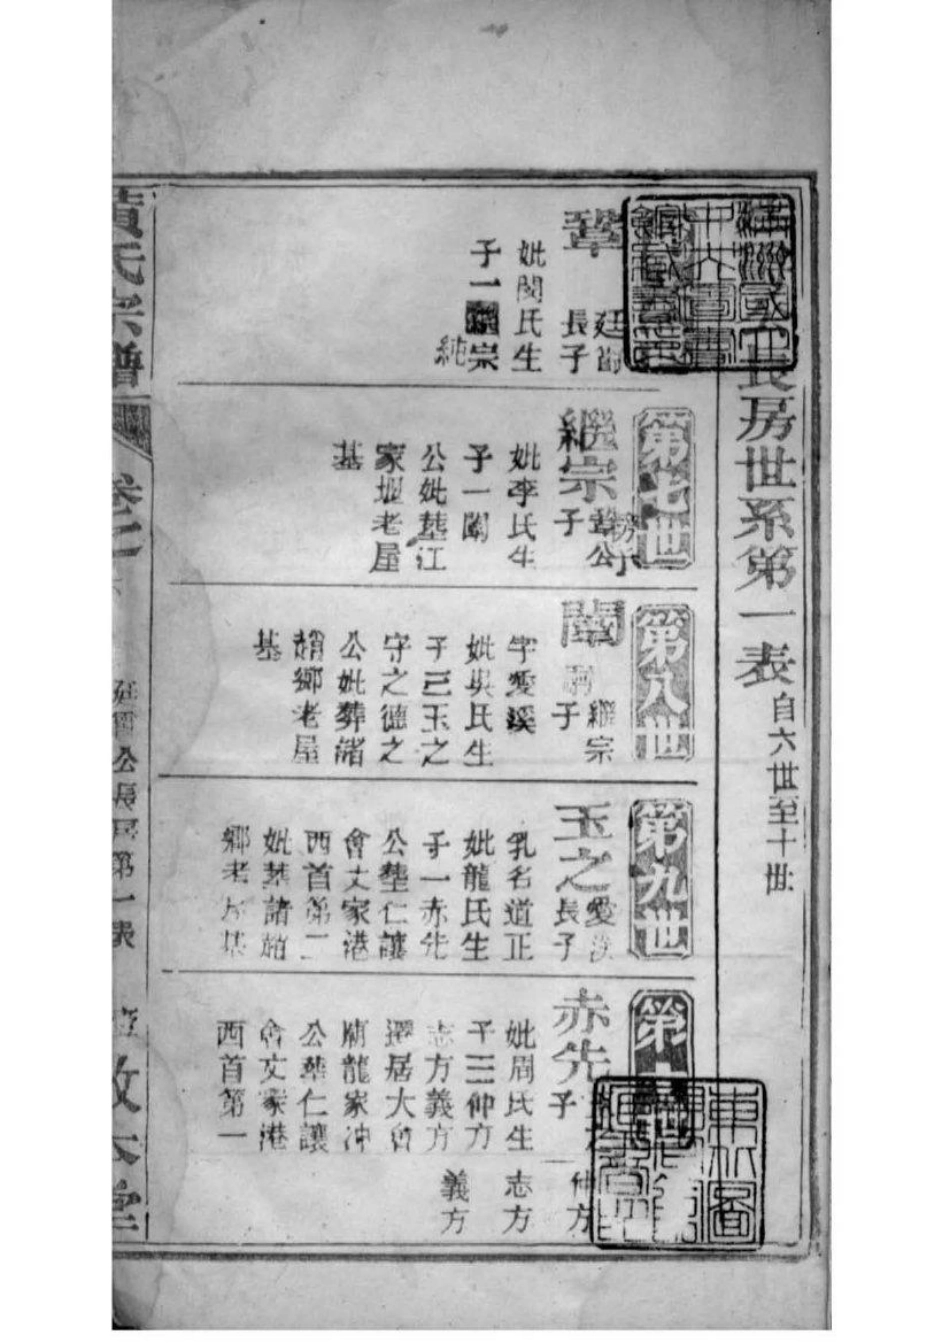 長房世系第一表 自六世至十世
鞏
長子
妣閔氏生
子一宗
純
第七世
繼宗
鞏公
子
妣李氏生
子一闈
公妣塟江
家垻老屋
基
第八世
闈
繼宗
子
字愛溪
妣吳氏生
子三玉之
守之德之
公妣葬諸
趙鄉老屋
基
第九世
玉之
愛溪
長子
乳名道正
妣龍氏生
子一赤先
公塟仁讓
會文家港
西首第二
妣塟諸趙
鄉老屋基
第十
赤先
子
妣周氏生
子三仲方
志方義方
遷居大會
廟龍家冲
公塟仁讓
會文家港
西首第一
仲方
志方
義方
黃氏宗譜
卷之
公長房第一表
敦本堂